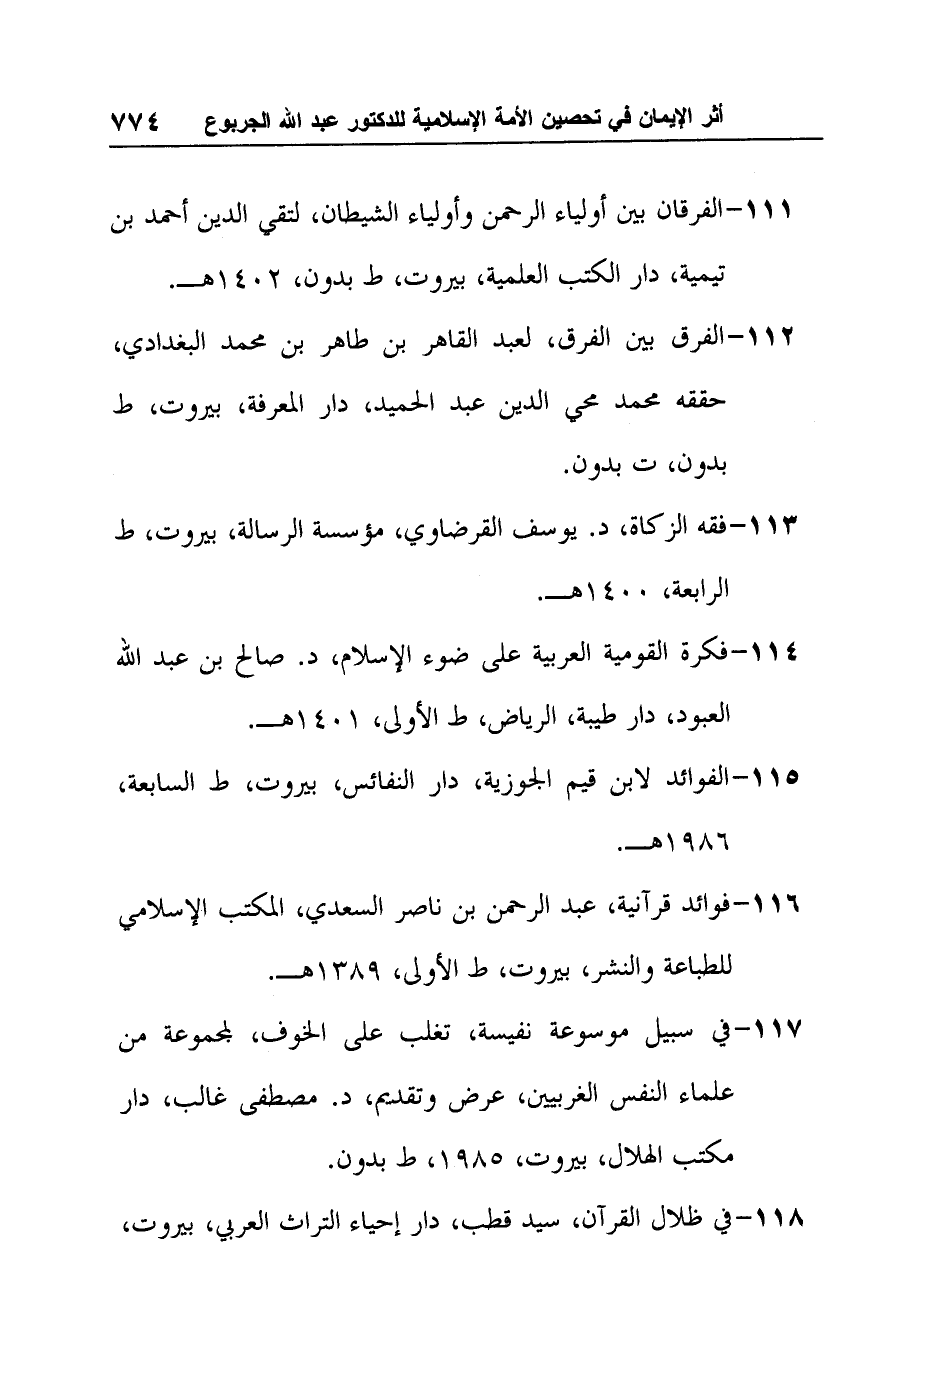 أثر الإيمان في تحصين الأمة الإسلامية للدكتور عبد الله الجربوع ٧٧٤
١١١-الفرقان بين أولياء الرحمن وأولياء الشيطان، لتقي الدين أحمد بن
تيمية، دار الكتب العلمية، بيروت، ط بدون، ١٤٠٢هـ.
١١٢-الفرق بين الفرق، لعبد القاهر بن طاهر بن محمد البغدادي،
حققه محمد محي الدين عبد الحميد، دار المعرفة، بيروت، ط
بدون، ت بدون.
١١٣-فقه الزكاة، د. يوسف القرضاوي، مؤسسة الرسالة، بيروت، ط
الرابعة، ١٤٠٠هـ.
١١٤-فكرة القومية العربية على ضوء الإسلام، د. صالح بن عبد الله
العبود، دار طيبة، الرياض، ط الأولى، ١٤٠١هـ.
١١٥-الفوائد لابن قيم الجوزية، دار النفائس، بيروت، ط السابعة،
١٩٨٦هـ.
١١٦-فوائد قرآنية، عبد الرحمن بن ناصر السعدي، المكتب الإسلامي
للطباعة والنشر، بيروت، ط الأولى، ١٣٨٩هـ.
١١٧-في سبيل موسوعة نفيسة، تغلب على الخوف، لمجموعة من
علماء النفس الغربيين، عرض وتقديم، د. مصطفى غالب، دار
مكتب الهلال، بيروت، ١٩٨٥، ط بدون.
١١٨-في ظلال القرآن، سيد قطب، دار إحياء التراث العربي، بيروت،